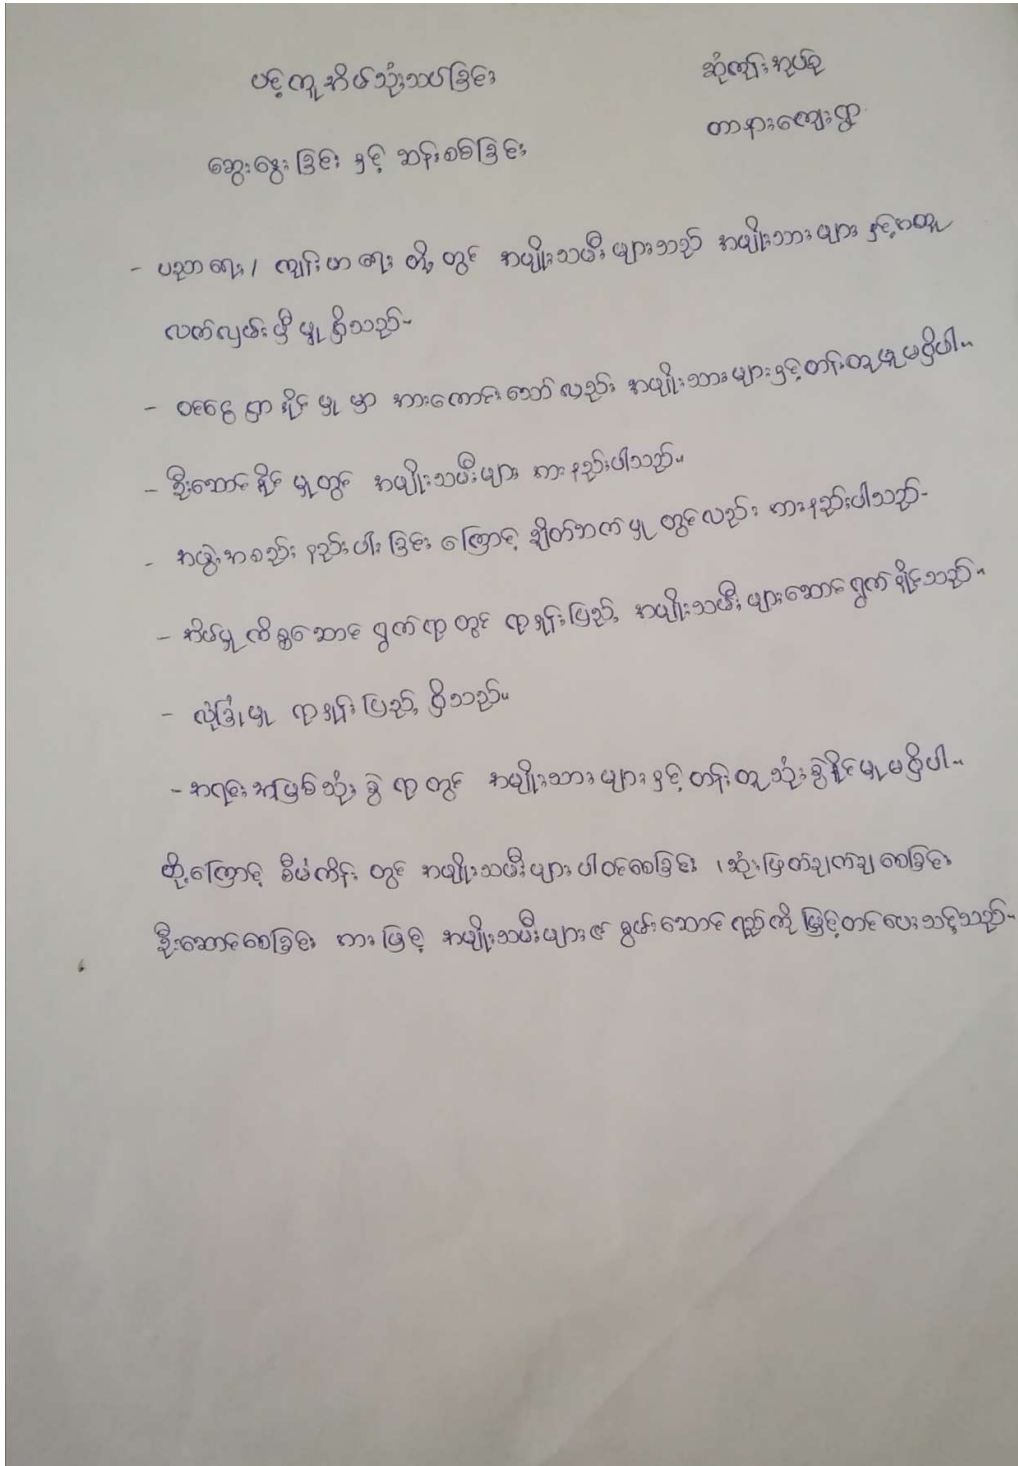 ပင့်ကူအိမ်သုံးသပ်ခြင်း
ဆုံကျုံးအုပ်စု
တာနားကျေးရွာ
ဆွေးနွေးခြင်း နှင့် ဆန်းစစ်ခြင်း
- ပညာရေး/ ကျန်းမာရေး တို့တွင် အမျိုးသမီးများသည် အမျိုးသားများ နှင့်အတူ
လက်လှမ်းမှီမှု ရှိသည်။
- ဝင်ငွေရှာနိုင်မှု မှာ အားကောင်းသော်လည်း အမျိုးသားများနှင့်တန်းတူမှုမရှိပါ။
- ဦးဆောင်နိုင်မှုတွင် အမျိုးသမီးများ အားနည်းပါသည်။
- အဖွဲ့အစည်း နည်းပါးခြင်းကြောင့် ချိတ်ဆက်မှု တွင်လည်း အားနည်းပါသည်။
- အိမ်မှုကိစ္စဆောင်ရွက်ရာတွင် ရာနှုန်းပြည့် အမျိုးသမီးများဆောင်ရွက်နိုင်သည်။
- လုံခြုံမှု ရာနှုန်းပြည့် ရှိသည်။
- အရင်းအမြစ်သုံးစွဲရာတွင် အမျိုးသားများနှင့် တန်းတူသုံးစွဲနိုင်မှုမရှိပါ။
ထို့ကြောင့် စီမံကိန်းတွင် အမျိုးသမီးများပါဝင်စေခြင်း ၊ဆုံးဖြတ်ချက်ချစေခြင်း
ဦးဆောင်စေခြင်း အားဖြင့် အမျိုးသမီးများ၏ စွမ်းဆောင်ရည်ကို မြှင့်တင်ပေးသင့်သည်။